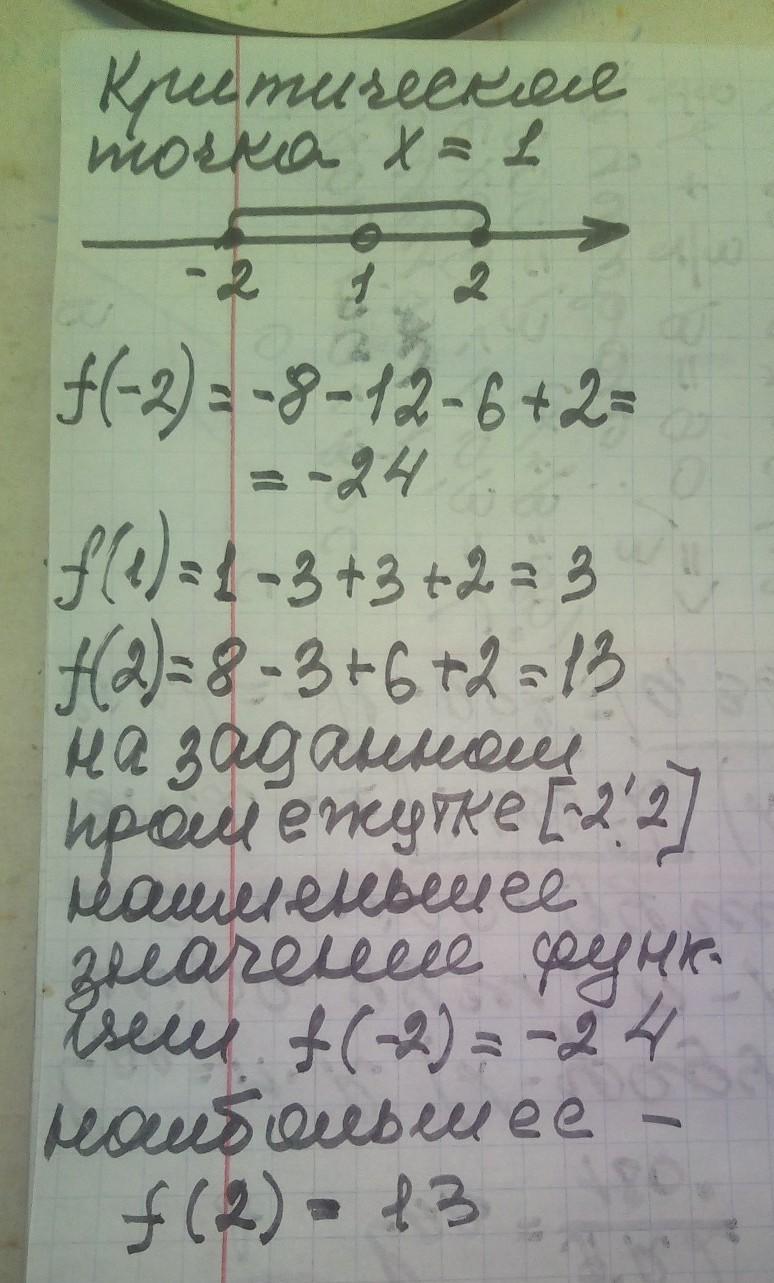 Критическая
точка x = 1
-2 1 2
f(-2) = -8 - 12 - 6 + 2 =
= -24
f(1) = 1 - 3 + 3 + 2 = 3
f(2) = 8 - 3 + 6 + 2 = 13
на заданном
промежутке [-2; 2]
наименьшее
значение функ-
ции f(-2) = -24
наибольшее -
f(2) = 13